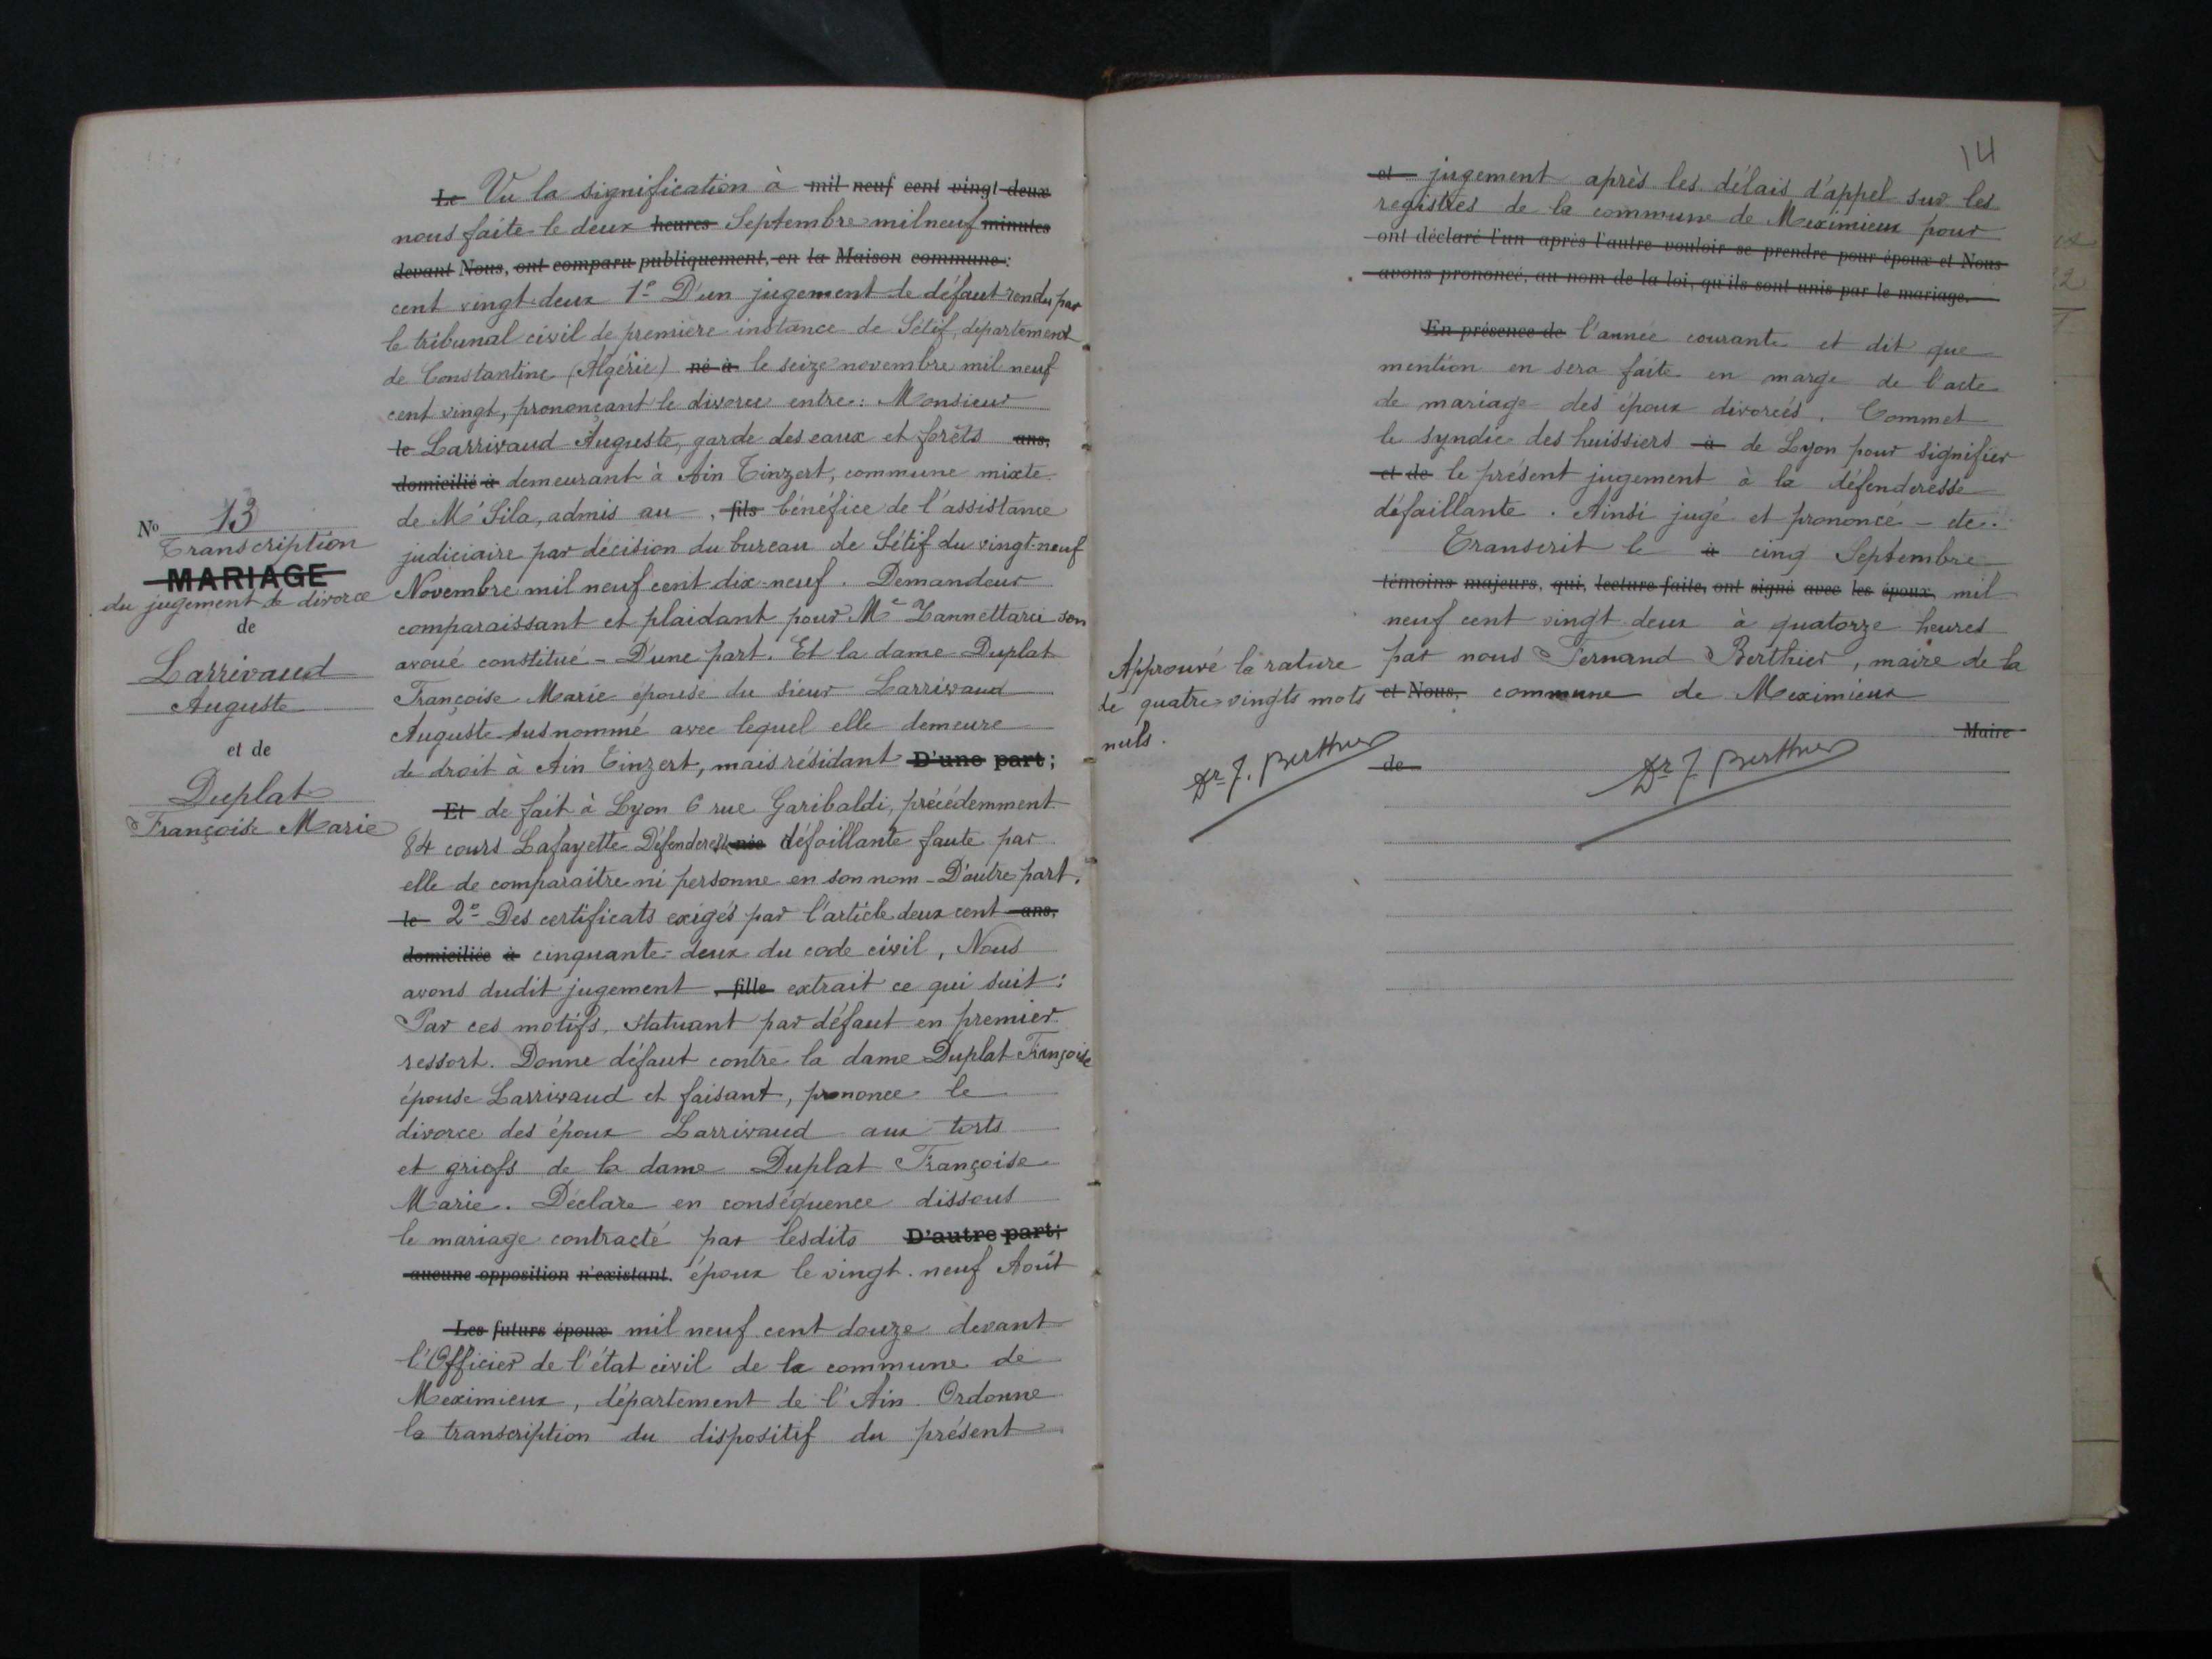 N° 13
Transcription
MARIAGE
du jugement de divorce
de
Larrivaud
Auguste
et de
Duplat
Françoise Marie
Le Vu la signification à mil neuf cent vingt-deux
nous faite le deux heures Septembre mil neuf minutes
devant Nous, ont comparu publiquement, en la Maison commune :
cent vingt-deux 1° D'un jugement de défaut rendu par
le tribunal civil de première instance de Sétif, département
de Constantine (Algérie) né à le seize novembre mil neuf
cent vingt, prononçant le divorce entre : Monsieur
le Larrivaud Auguste, garde des eaux et forêts ans,
domicilié à demeurant à Ain Tinzert, commune mixte
de M'Sila, admis au , fils bénéfice de l'assistance
judiciaire par décision du bureau de Sétif du vingt-neuf
Novembre mil neuf cent dix-neuf. Demandeur
comparaissant et plaidant pour Me Zannettacci son
avoué constitué - D'une part. Et la dame Duplat
Françoise Marie épouse du sieur Larrivaud
Auguste susnommé avec lequel elle demeure
de droit à Ain Tinzert, mais résidant D'une part ;
Et de fait à Lyon 6 rue Garibaldi, précédemment
84 cours Lafayette Défenderesse née défaillante faute par
elle de comparaitre ni personne en son nom - D'autre part.
le 2° Des certificats exigés par l'article deux cent ans,
domiciliée à cinquante-deux du code civil, Nous
avons dudit jugement , fille extrait ce qui suit :
Par ces motifs, statuant par défaut en premier
ressort. Donne défaut contre la dame Duplat Françoise
épouse Larrivaud et faisant, prononce le
divorce des époux Larrivaud aux torts
et griefs de la dame Duplat Françoise
Marie. Déclare en conséquence dissous
le mariage contracté par lesdits D'autre part ;
aucune opposition n'existant. époux le vingt-neuf Août
Les futurs époux mil neuf cent douze devant
l'Officier de l'état civil de la commune de
Meximieux, département de l'Ain. Ordonne
la transcription du dispositif du présent
14
et jugement après les délais d'appel sur les
registres de la commune de Meximieux pour
ont déclaré l'un après l'autre vouloir se prendre pour époux et Nous
avons prononcé, au nom de la loi, qu'ils sont unis par le mariage.
En présence de l'année courante et dit que
mention en sera faite en marge de l'acte
de mariage des époux divorcés. Commet
le syndic des huissiers à de Lyon pour signifier
et de le présent jugement à la défenderesse
défaillante. Ainsi jugé et prononcé - etc.
Transcrit le à cinq Septembre
témoins majeurs, qui, lecture faite, ont signé avec les époux, mil
neuf cent vingt-deux à quatorze heures
par nous Fernand Berthier, maire de la
et Nous, commune de Meximieux
Maire
de
Approuvé la rature
de quatre-vingts mots
nuls.
Dr F. Berthier
Dr F. Berthier